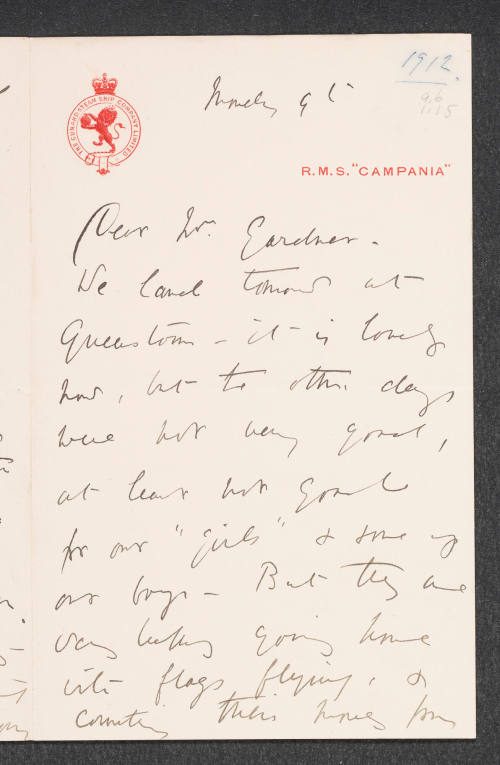 1912.
Monday 9th
THE CUNARD STEAM SHIP COMPANY LIMITED
R.M.S. "CAMPANIA"
Dear Mrs. Gardner -
We land tomorrow at
Queenstown - it is lovely
now, but the other days
were not very good,
at least not good
for our "girls" & some of
our boys - But they are
very happy going home
with flags flying, &
counting their money from